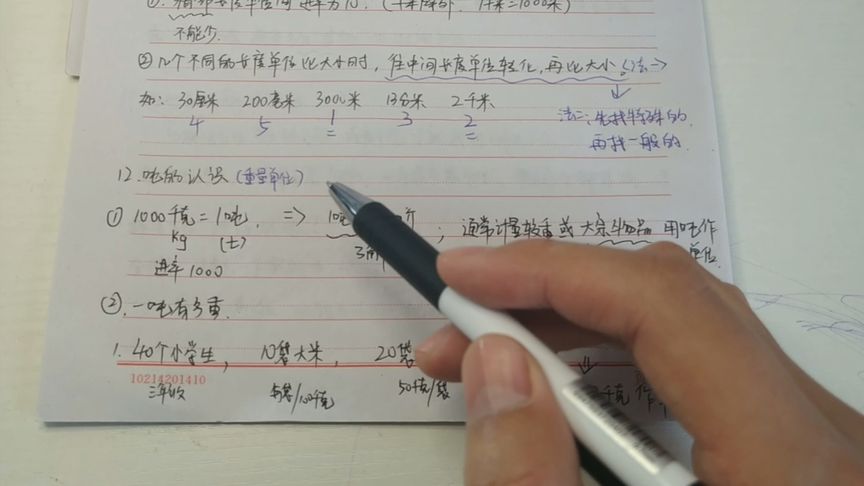 不能少.
②几个不同的长度单位比大小时，往中间长度单位转化，再比大小。(法一)
如：30厘米 200毫米 3000米 13分米 2千米
4 5 1 3 2
法二：先找特殊的.
再找一般的.
12.吨的认识(重量单位)
① 1000千克=1吨. => 1吨 斤 ；通常计量较重或大宗物品 用吨作
kg (t) 单位.
进率1000
②.一吨有多重.
1. 40个小学生， 10袋大米， 20袋
10214201410
三年级 每袋/100千克 50千克/袋 千克 作